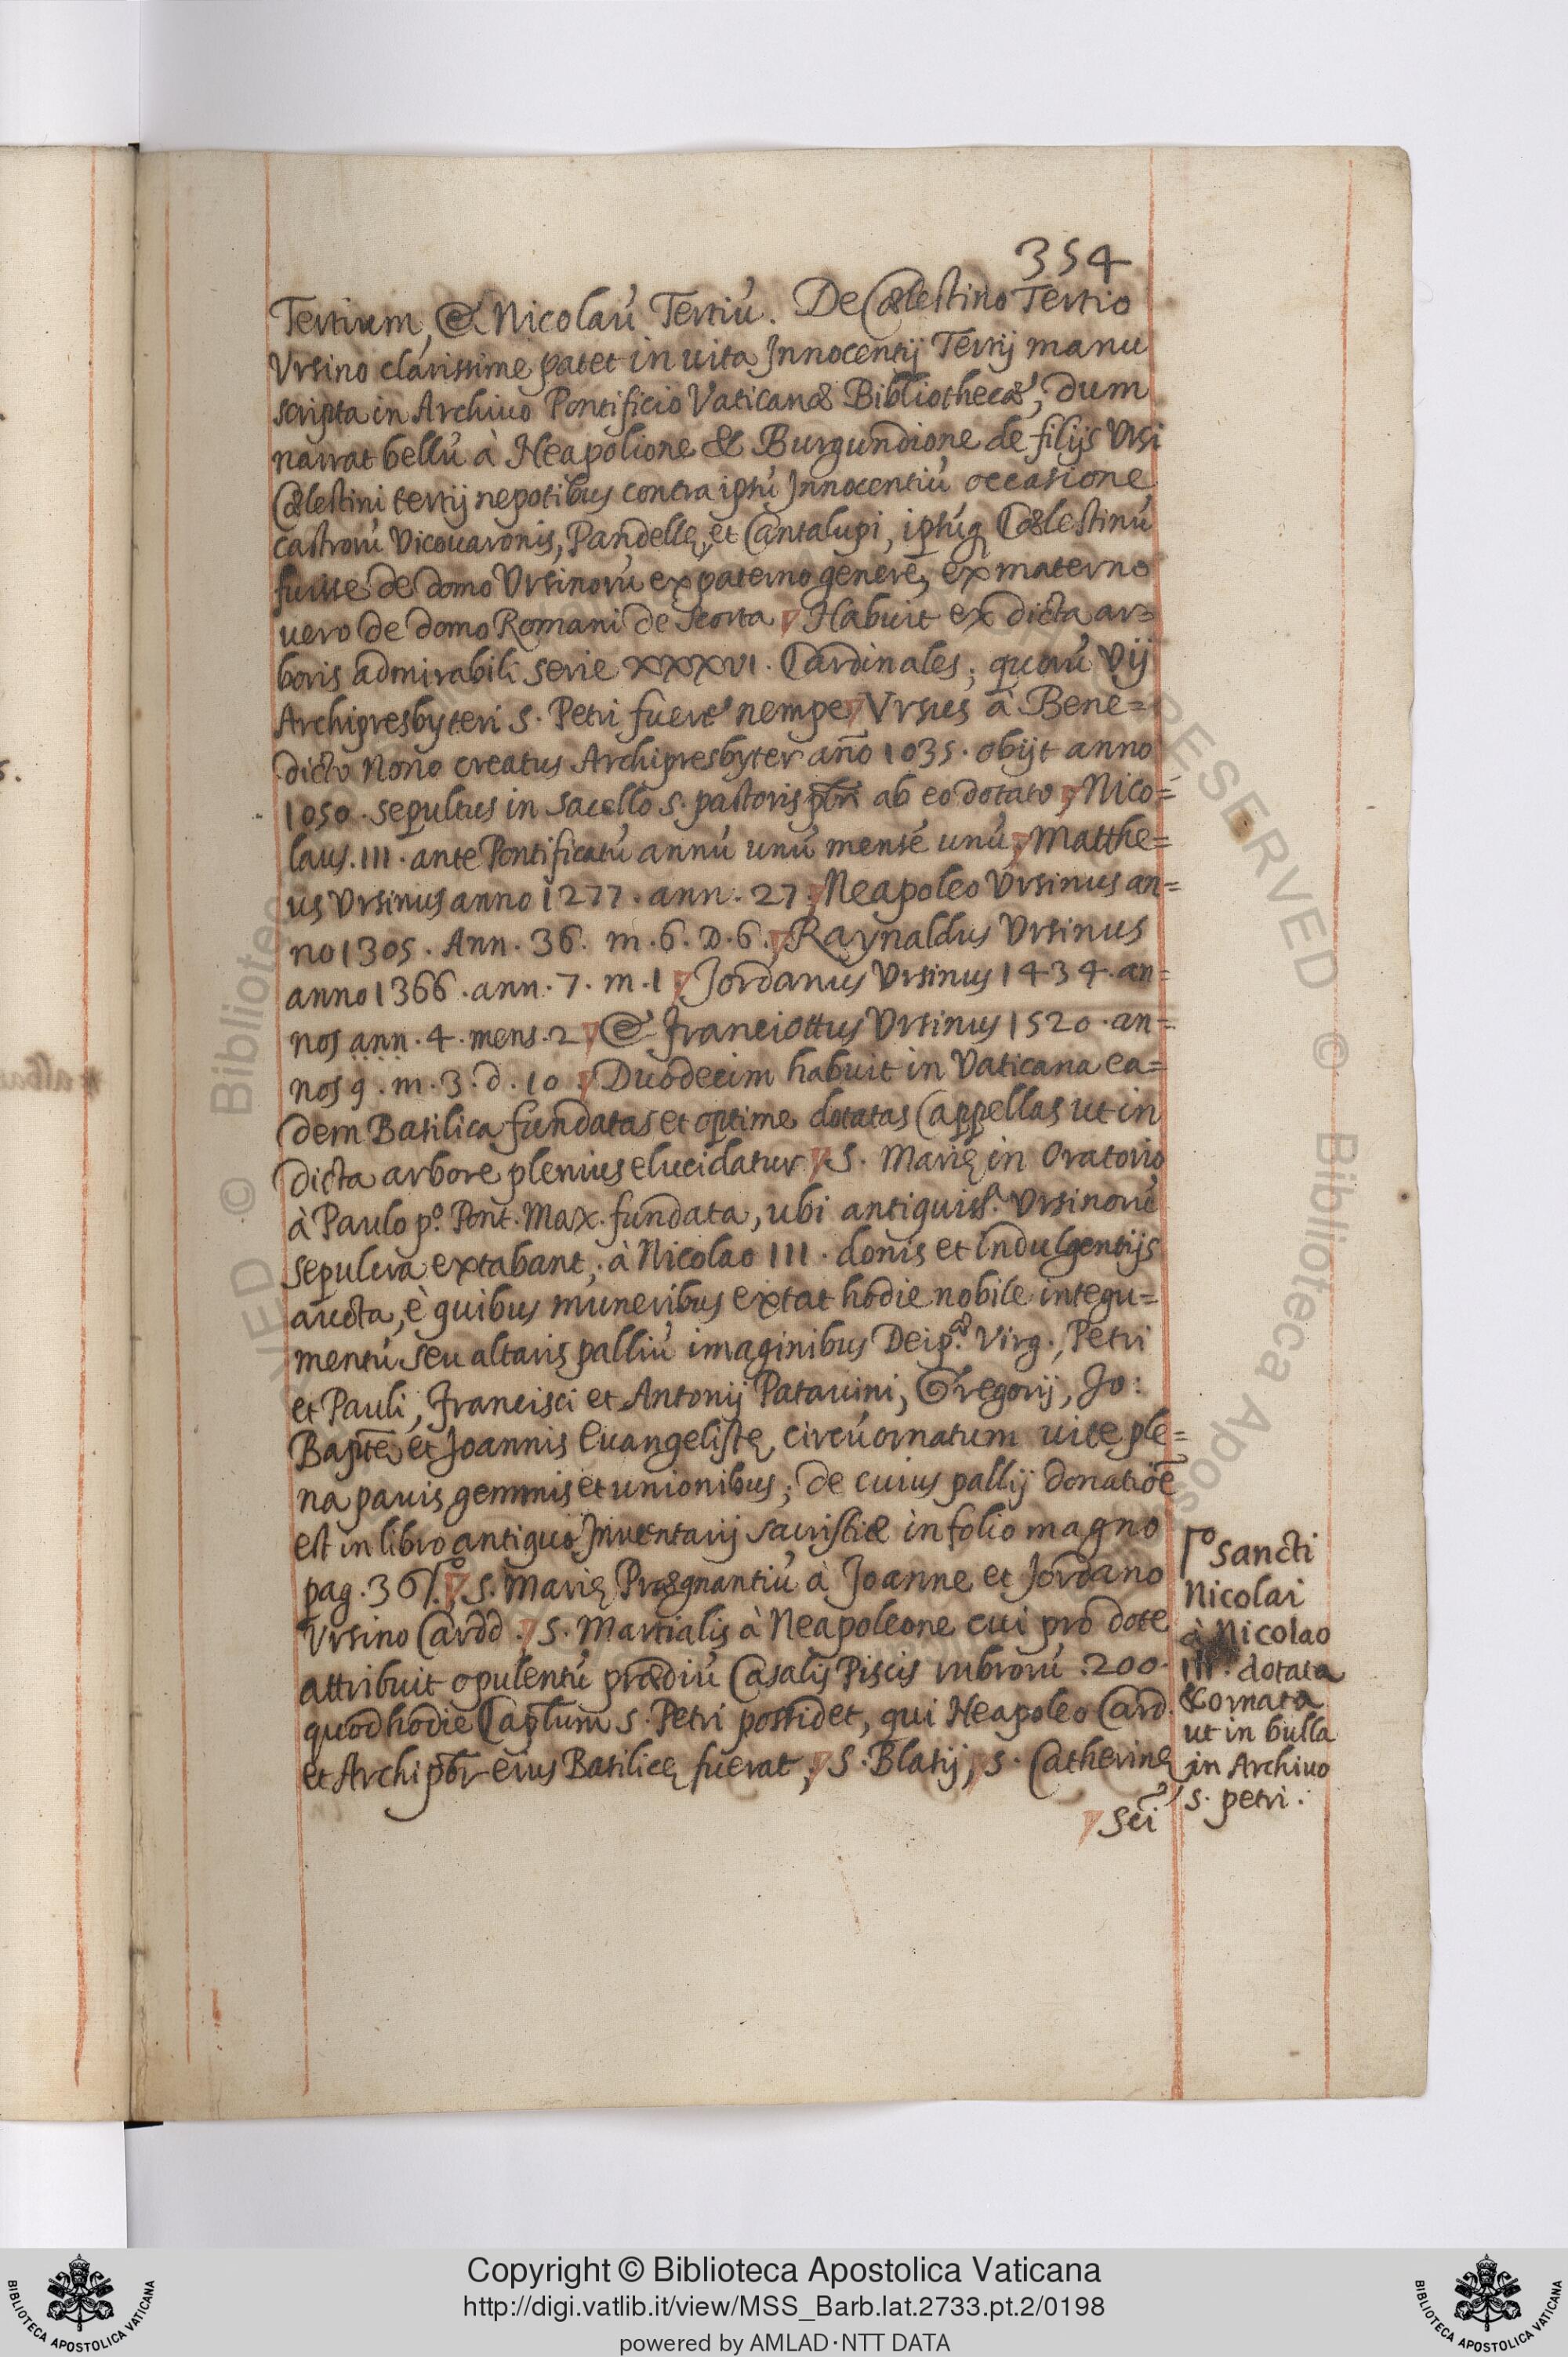 354
Tertium, & Nicolaú Tertiú. De Cælestino Tertio
Vrsino clarissime patet in uita Innocentij Tertij manu
scripta in Archiuo Pontificio Vaticanæ Bibliothecæ; dum
narrat bellú à Neapolione & Burgundione de filijs Vrsi
Cælestini tertij nepotibus contra ipsú Innocentiú occasione
castrorú Vicouaronis, Pandellę, et Cantalupi, ipsúq Cælestinú
fuisse de domo Vrsinorú ex paterno genere, ex materno
uero de domo Romani de Scorta Habuit ex dicta ar=
boris admirabili serie XXXVI. Cardinales; quorú Vij
Archipresbyteri S. Petri fuere nempe Vrsus à Bene=
dicto Nono creatus Archipresbyter año 1035. obijt anno
1050. sepultus in sacello S. pastoris pbri ab eo dotato; Nico=
laus. III. ante Pontificatú annú unú mensé unú; Matthe=
us Vrsinus anno 1277. ann. 27; Neapoleo Vrsinus an=
no 1305. Ann. 36. m. 6. D. 6. Raynaldus Vrsinus
anno 1366. ann. 7. m. 1 Jordanus Vrsinus 1434. an=
nos ann. 4. mens. 2 & Franciottus Vrsinus 1520. an=
nos 9. m. 3. d. 10. Duodecim habuit in Vaticana ea=
dem Basilica fundatas et optime dotatas Cappellas ut in
dicta arbore plenius elucidatur S. Marię in Oratorio
à Paulo pº. Pont. Max. fundata, ubi antiquissª. Vrsinorú
sepulcra extabant; à Nicolao III. donis et Indulgentijs
aucta, è quibus muneribus extat hodie nobile integu=
mentú seu altaris palliú imaginibus Deipæ. Virg., Petri
et Pauli, Francisci et Antonij Patauini, Gregorij, Jo:
Baptę et Joannis Euangelistę, circúornatum uite ple=
na pauis gemmis et unionibus; de cuius pallij donatiõe
est in libro antiquo Inuentarij sacristiæ in folio magno
pag. 36. S. Marię Prægnantiú à Joanne et Jordano
Vrsino Cardd. S. Martialis à Neapoleone cui pro dote
attribuit opulentú prædiú Casalis Piscis rubrorú. 200.
quod hodie Caplum S. Petri possidet, qui Neapoleo Card.
et Archipbr eius Basilicę fuerat; S. Blasij; S. Catherinę
Sci
Sancti
Nicolai
à Nicolao
III. dotata
& ornata
ut in bulla
in Archiuo
S. petri.
Copyright © Biblioteca Apostolica Vaticana
http://digi.vatlib.it/view/MSS_Barb.lat.2733.pt.2/0198
powered by AMLAD·NTT DATA